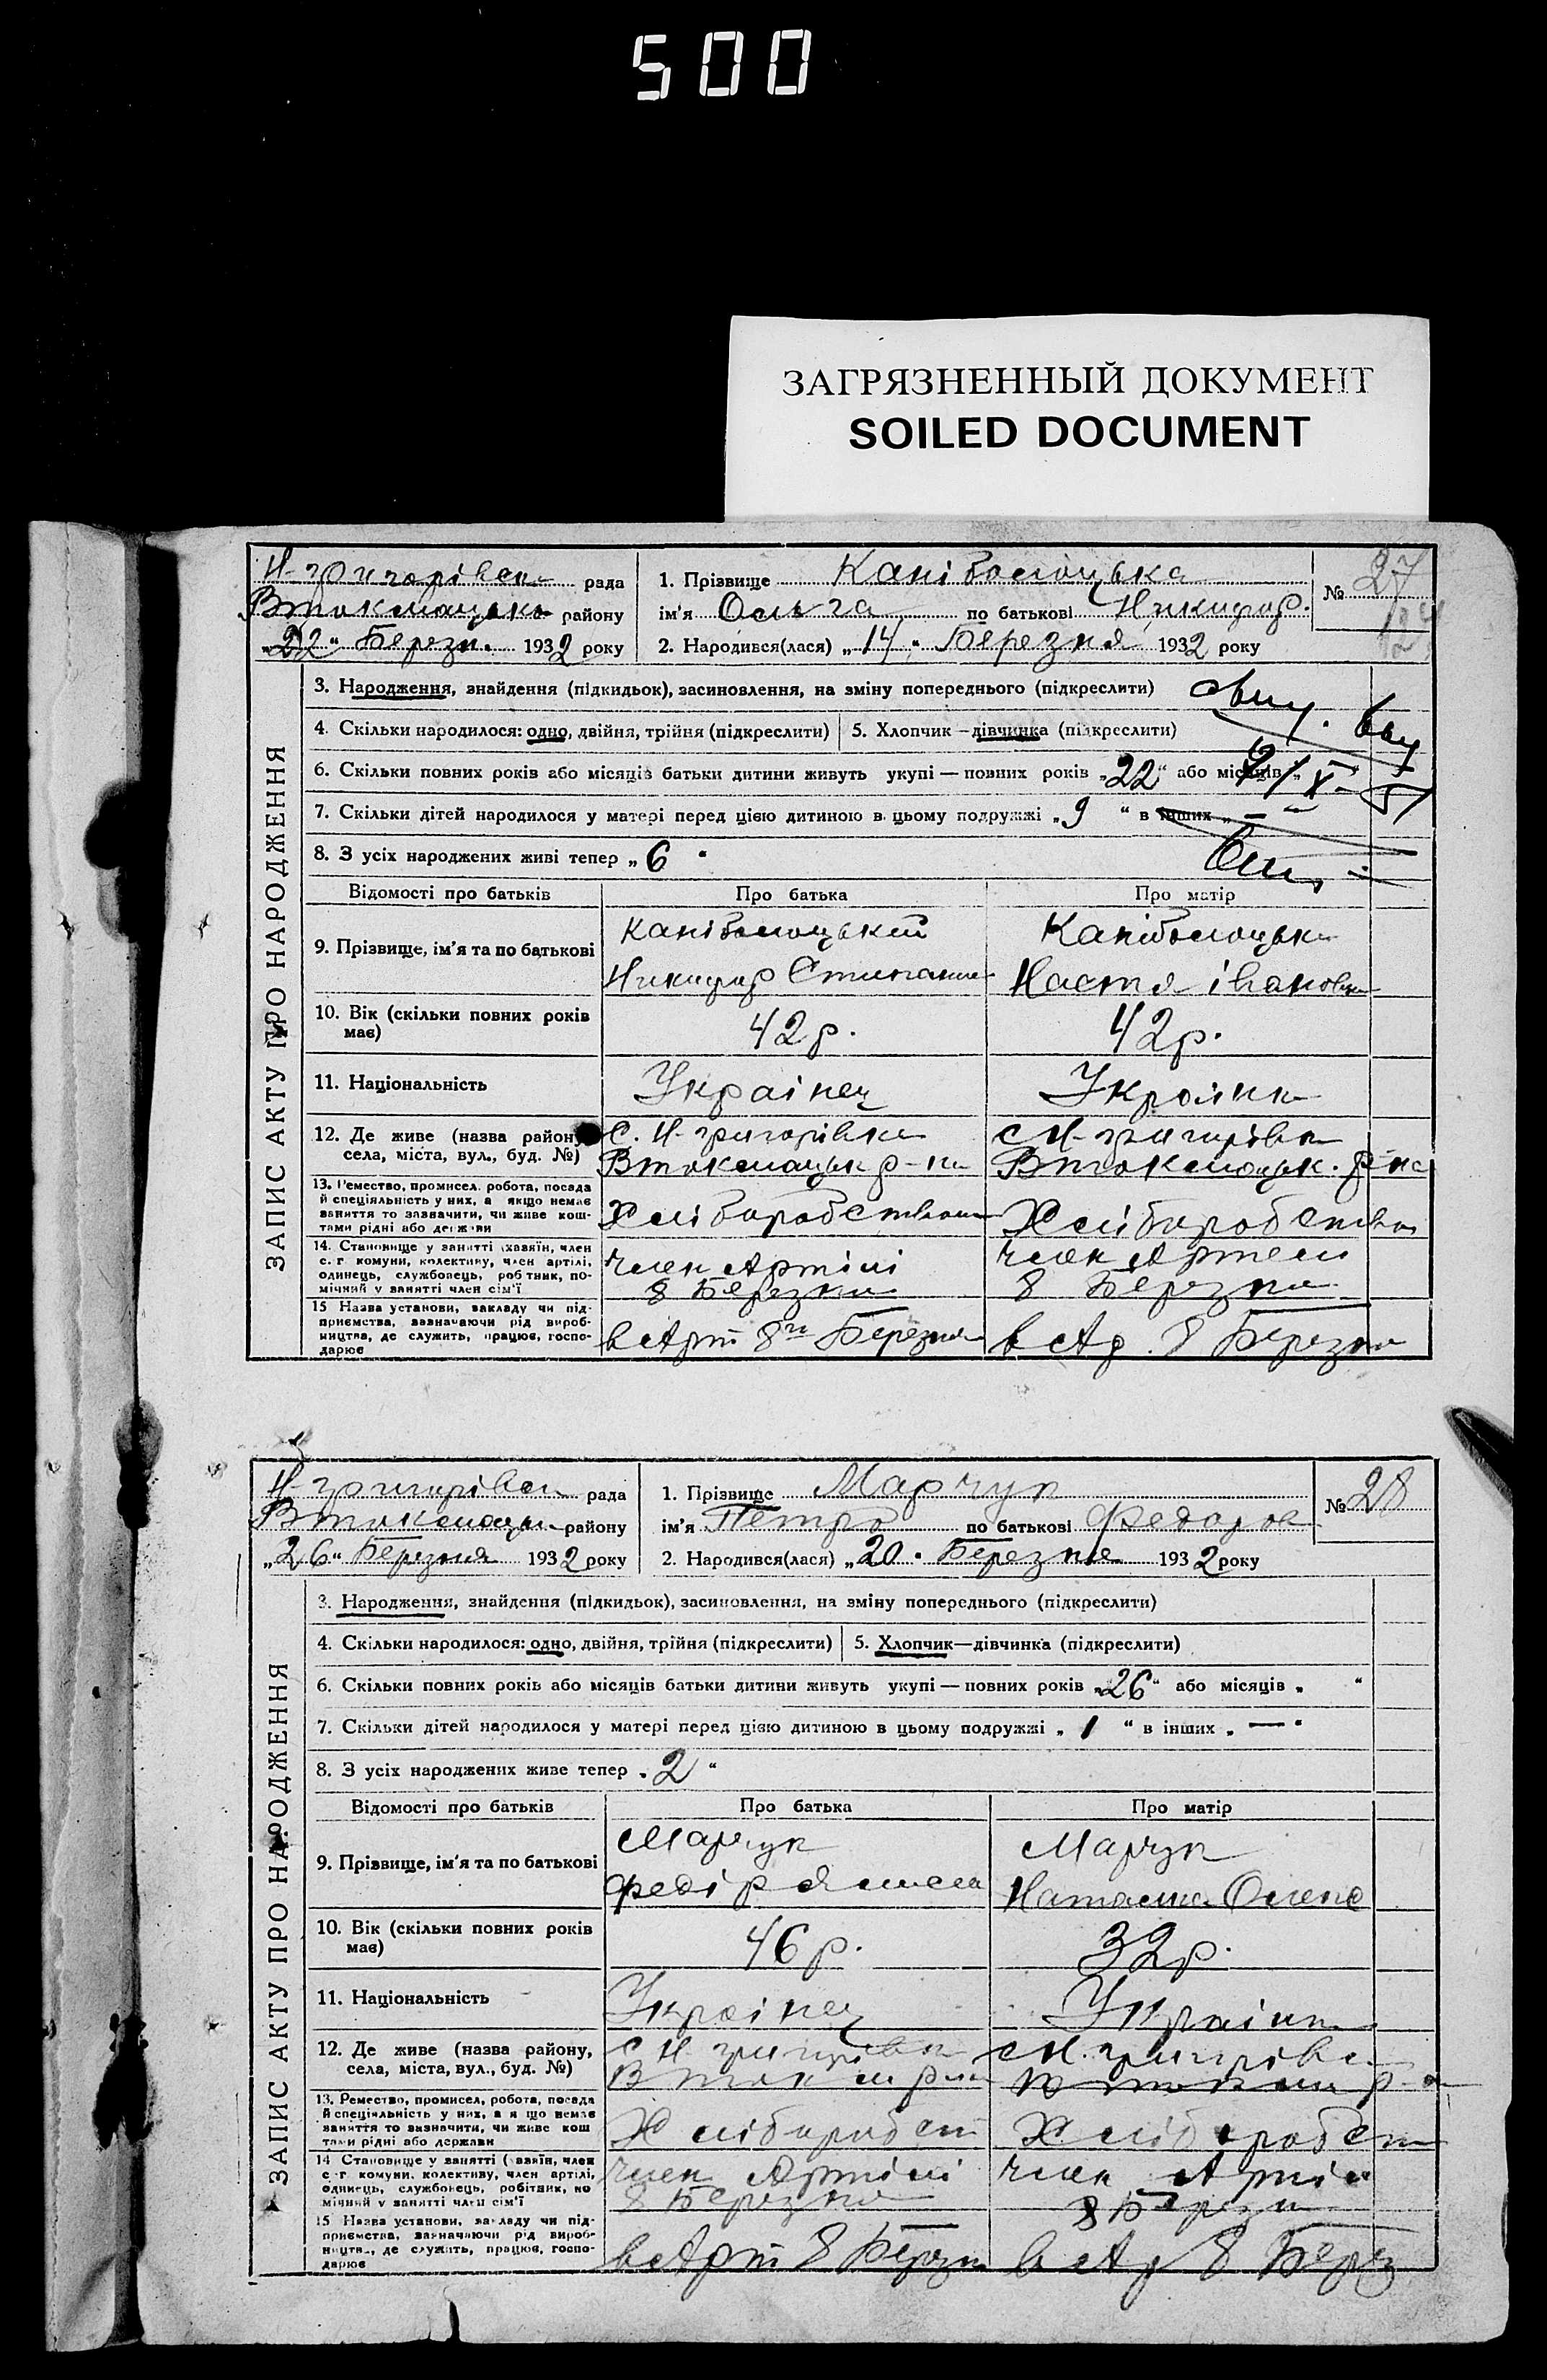 500
ЗАГРЯЗНЕННЫЙ ДОКУМЕНТ
SOILED DOCUMENT
Н-григорівськ рада
Втокмацько району
„22“ Березн. 1932 року
1. Прізвище Каніволоцька
ім’я Ольга по батькові Никифор.
2. Народився(лася) „14“ Березня 1932 року
№ 27
ЗАПИС АКТУ ПРО НАРОДЖЕННЯ
3. Народження, знайдення (підкидьок), засиновлення, на зміну попереднього (підкреслити)
4. Скільки народилося: одно, двійня, трійня (підкреслити) 5. Хлопчик—дівчинка (підкреслити)
6. Скільки повних років або місяців батьки дитини живуть укупі — повних років „22“ або місяців „
7. Скільки дітей народилося у матері перед цією дитиною в цьому подружжі „9“ в інших „—
8. З усіх народжених живі тепер „6“
Відомості про батьків Про батька Про матір
9. Прізвище, ім’я та по батькові
Никифор
Настя івановна
10. Вік (скільки повних років має) 42 р. 42 р.
11. Національність Українец Українка
12. Де живе (назва району, села, міста, вул., буд. №)
С. Н-григорівка
Втокмацьк р-на
с Н-григорівка
Втокмацьк. р-на
13. Ремество, промисел, робота, посада
й спеціяльність у них, а якщо немає
заняття то зазначити, чи живе кош-
тами рідні або держави
Хліборобство Хліборобство
14. Становище у занятті (хазяїн, член
с.-г комуни, колективу, член артілі,
одинець, службовець, робітник, по-
мічний у занятті член сім’ї
член Артілі
8 Березня
член Артели
8 Березня
15 Назва установи, закладу чи під-
приємства, зазначаючи рід вироб-
ництва, де служить, працює, госпо-
дарює
в Арт 8го Березня в Ар. 8 Березня
Н-григорівськ рада
району
„26“ Березня 1932 року
1. Прізвище Марчук
ім’я Петро по батькові Федоров
2. Народився(лася) „20“ Березня 1932 року
№ 28
ЗАПИС АКТУ ПРО НАРОДЖЕННЯ
3. Народження, знайдення (підкидьок), засиновлення, на зміну попереднього (підкреслити)
4. Скільки народилося: одно, двійня, трійня (підкреслити) 5. Хлопчик—дівчинка (підкреслити)
6. Скільки повних років або місяців батьки дитини живуть укупі — повних років „26“ або місяців „ “
7. Скільки дітей народилося у матері перед цією дитиною в цьому подружжі „1“ в інших „—“
8. З усіх народжених живе тепер „2“
Відомості про батьків Про батька Про матір
9. Прізвище, ім’я та по батькові
Марчук
Федір
Марчук
10. Вік (скільки повних років має) 46 р. 32 р.
11. Національність Українец Українка
12. Де живе (назва району, села, міста, вул., буд. №)
с Н. григорівка
с Н. григорівка
13. Ремество, промисел, робота, посада
й спеціяльність у них, а якщо немає
заняття то зазначити, чи живе кош
тами рідні або держави
Хліборобст Хліборобст
14 Становище у занятті (хазяїн, член
с-г комуни, колективу, член артілі,
одинець, службовець, робітник, по
мічний у занятті член сім’ї
член Артілі
8 Березня
член Артіл
8 Березн
15 Назва установи, закладу чи під-
приємства, зазначаючи рід вироб-
ництва, де служить, працює, госпо-
дарює
в Арт 8 Березн в Ар 8 Берез